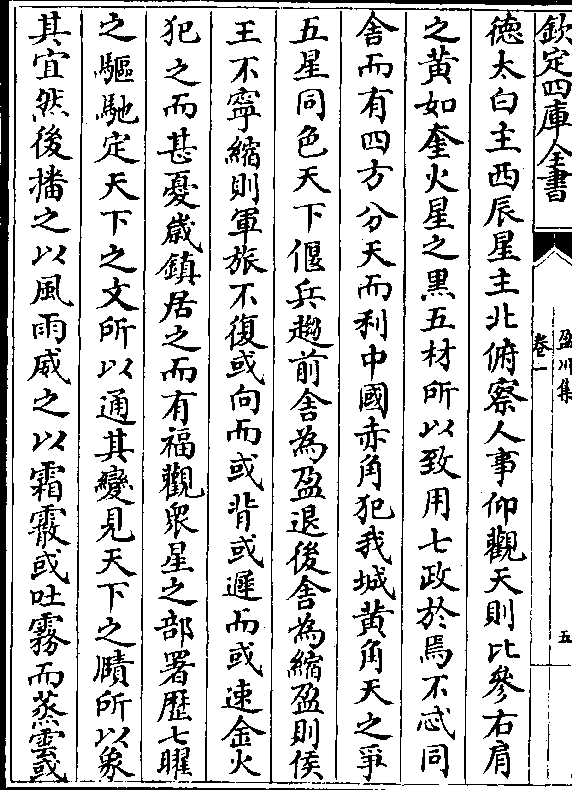 欽定四庫全書
盈川集
卷一
五
德太白主西辰星主北俯察人事仰觀天則比參右肩
之黃如奎火星之黑五材所以致用七政於焉不忒同
舍而有四方分天而利中國赤角犯我城黃角天之爭
五星同色天下偃兵趨前舍為盈退後舍為縮盈則侯
王不寧縮則軍旅不復或向而或背或遲而或速金火
犯之而甚憂歲鎮居之而有福觀衆星之部署歷七曜
之驅馳定天下之文所以通其變見天下之賾所以象
其宜然後播之以風雨威之以霜霰或吐霧而蒸雲或